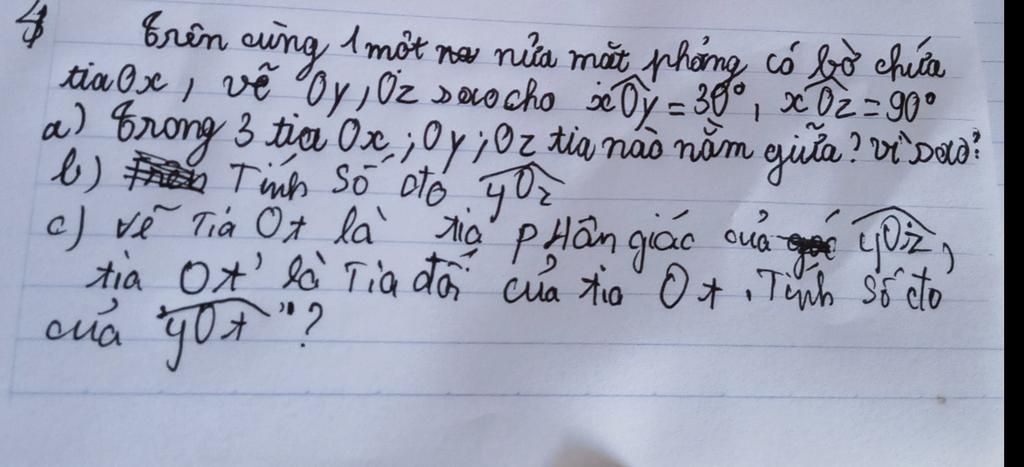 4
Trên cùng 1 một nữa mặt phẳng có bờ chứa
tia Ox, vẽ Oy, Oz sao cho xOy = 30°, xOz = 90°
a) Trong 3 tia Ox; Oy; Oz tia nào nằm giữa? vì sao?
b) Tính Số đo yOz
c) vẽ Tia Ot là tia pHân giác của yOz,
tia Ot' là Tia đối của tia Ot. Tính Số đo
của yOt'?